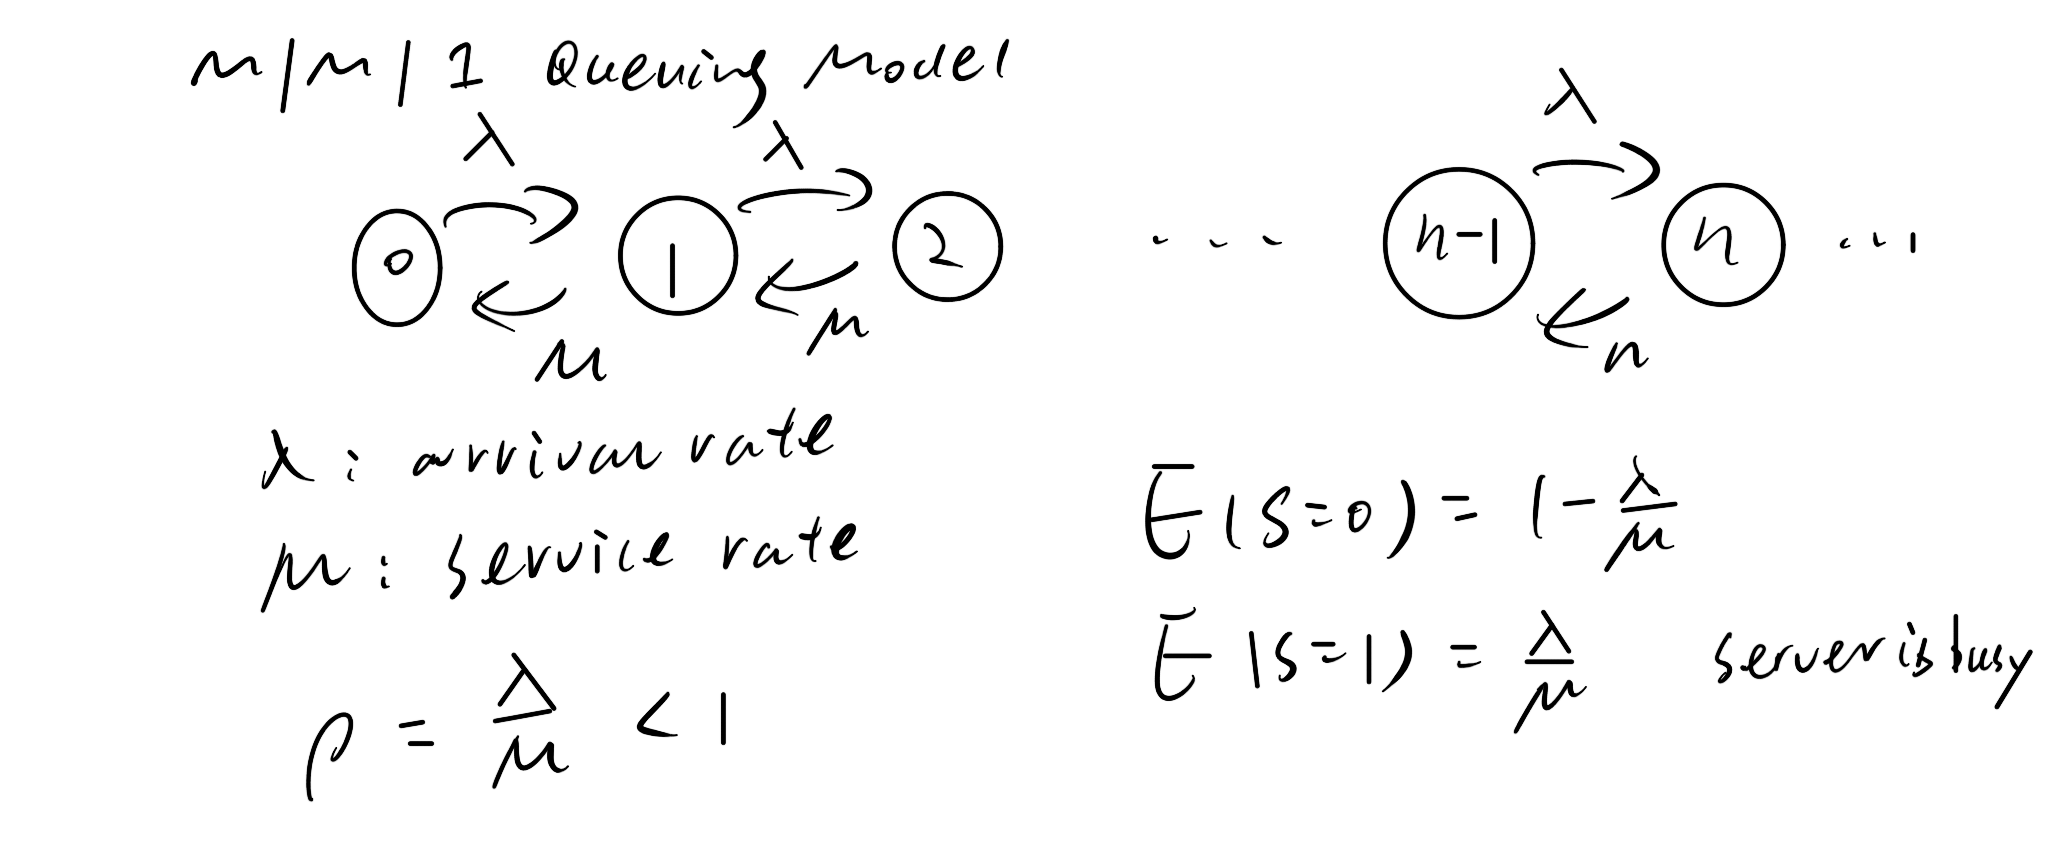 M/M/1 Queuing Model
λ λ λ
0 1 2 ... n-1 n ...
μ μ n
λ: arrival rate
μ: service rate
ρ = λ/μ < 1
E(S=0) = 1 - λ/μ
E(S=1) = λ/μ server is busy